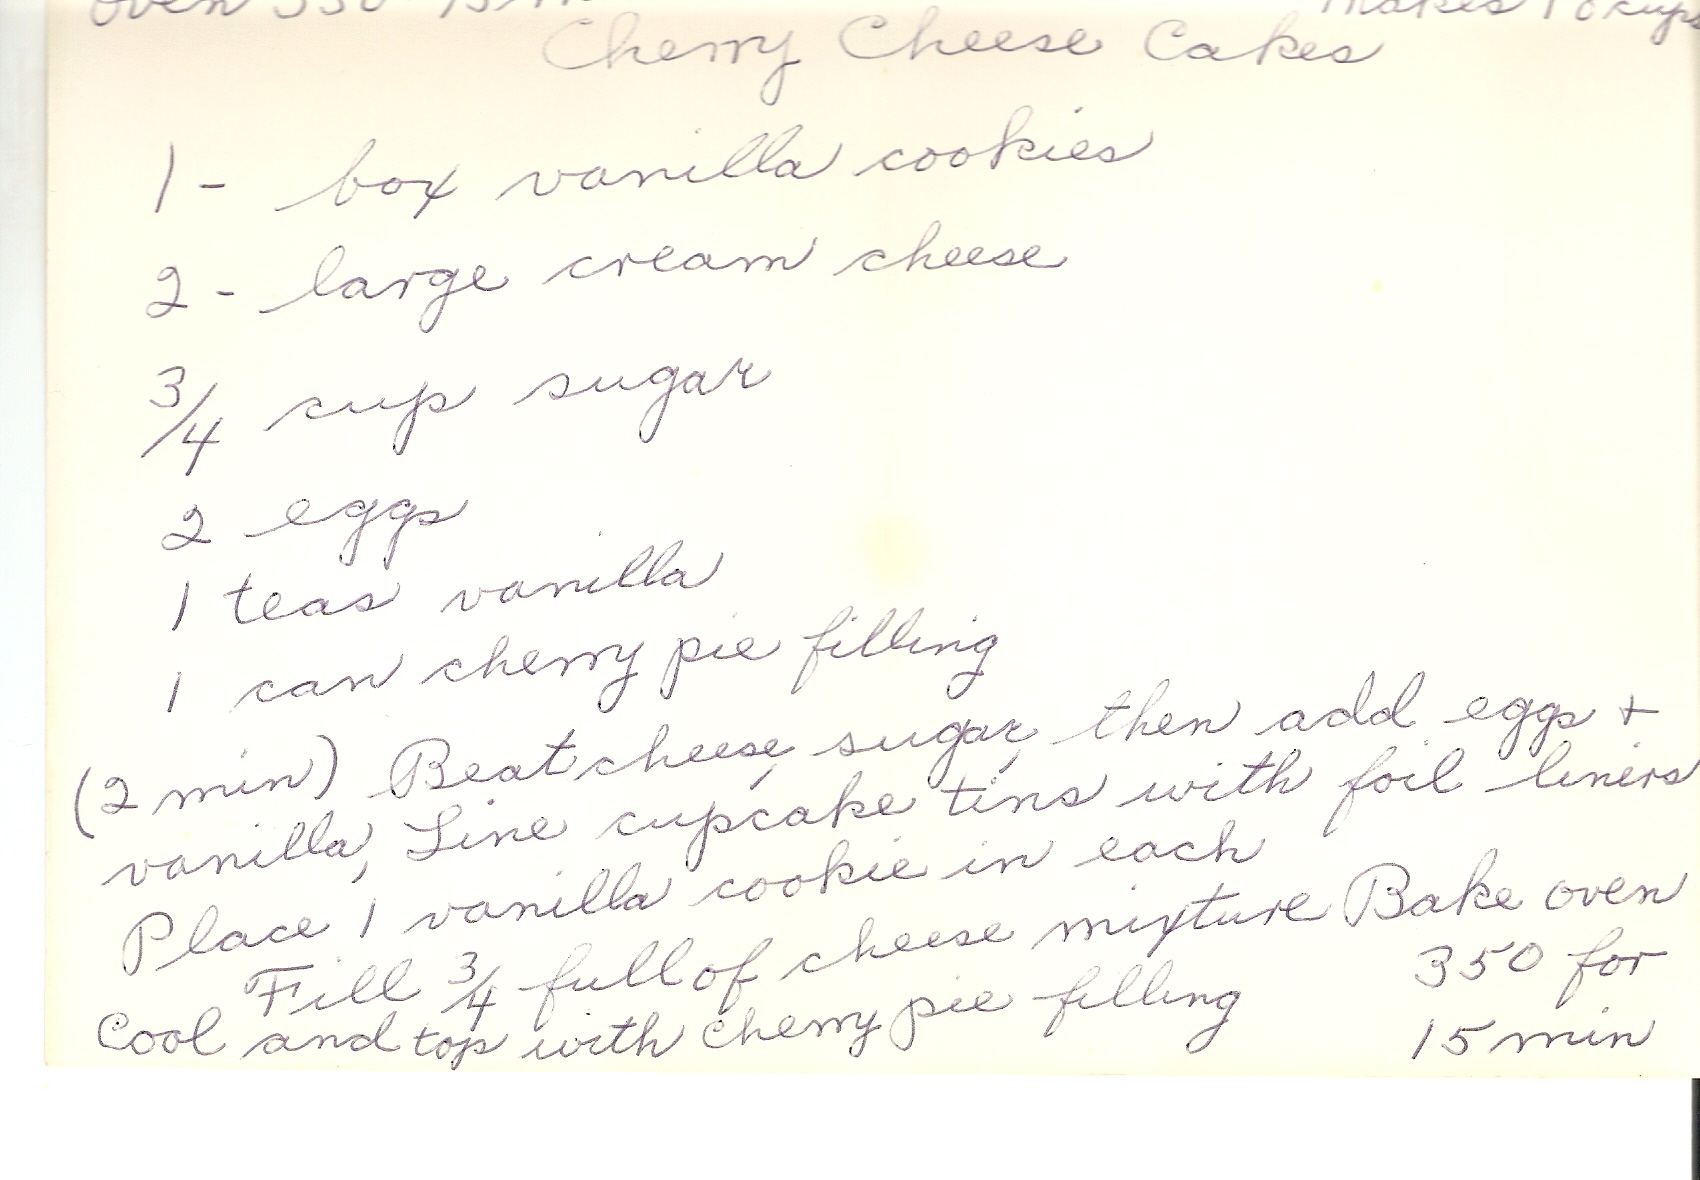 oven 350 15 m
makes 18 cups
Cherry Cheese Cakes
1 - box vanilla cookies
2 - large cream cheese
3/4 cup sugar
2 eggs
1 teas vanilla
1 can cherry pie filling
(2 min) Beat cheese, sugar, then add eggs +
vanilla, Line cupcake tins with foil liners
Place 1 vanilla cookie in each
Fill 3/4 full of cheese mixture Bake oven
350 for
Cool and top with cherry pie filling
15 min